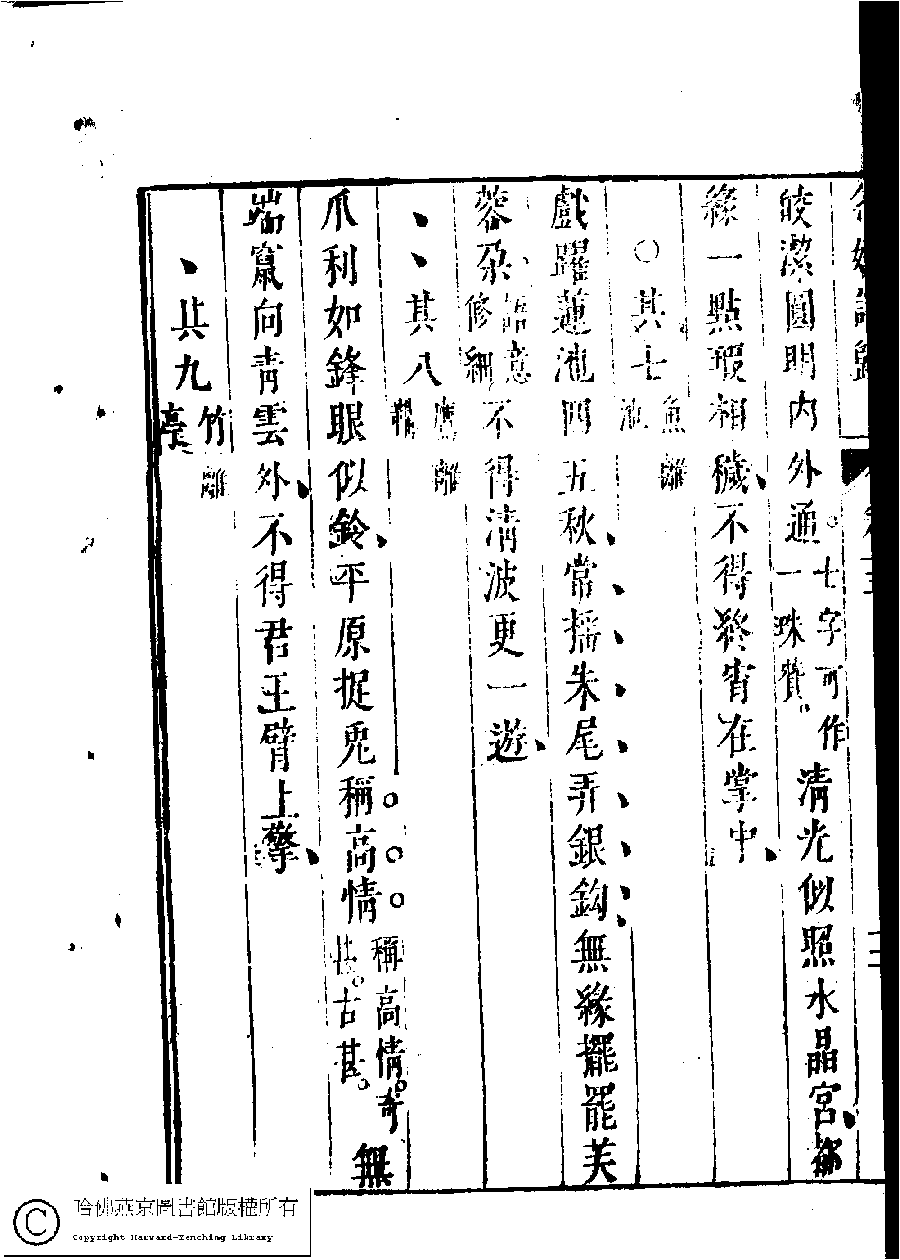 名媛詩歸
皎潔圓明內外通。七字可作一珠贊。清光似照水晶宮都
緣一點瑕相穢不得終宵在掌中
○其七 魚離池
戲躍蓮池四五秋常搖朱尾弄銀鈎無緣擺罷芙
蓉朶語意修細不得清波更一遊
其八 鷹離鞲
爪利如鋒眼似鈴平原捉兎稱高情稱高情。奇甚。古甚。無
端竄向青雲外不得君王臂上擎
其九 竹離亭
哈佛燕京圖書館版權所有
Copyright Harvard-Yenching Library